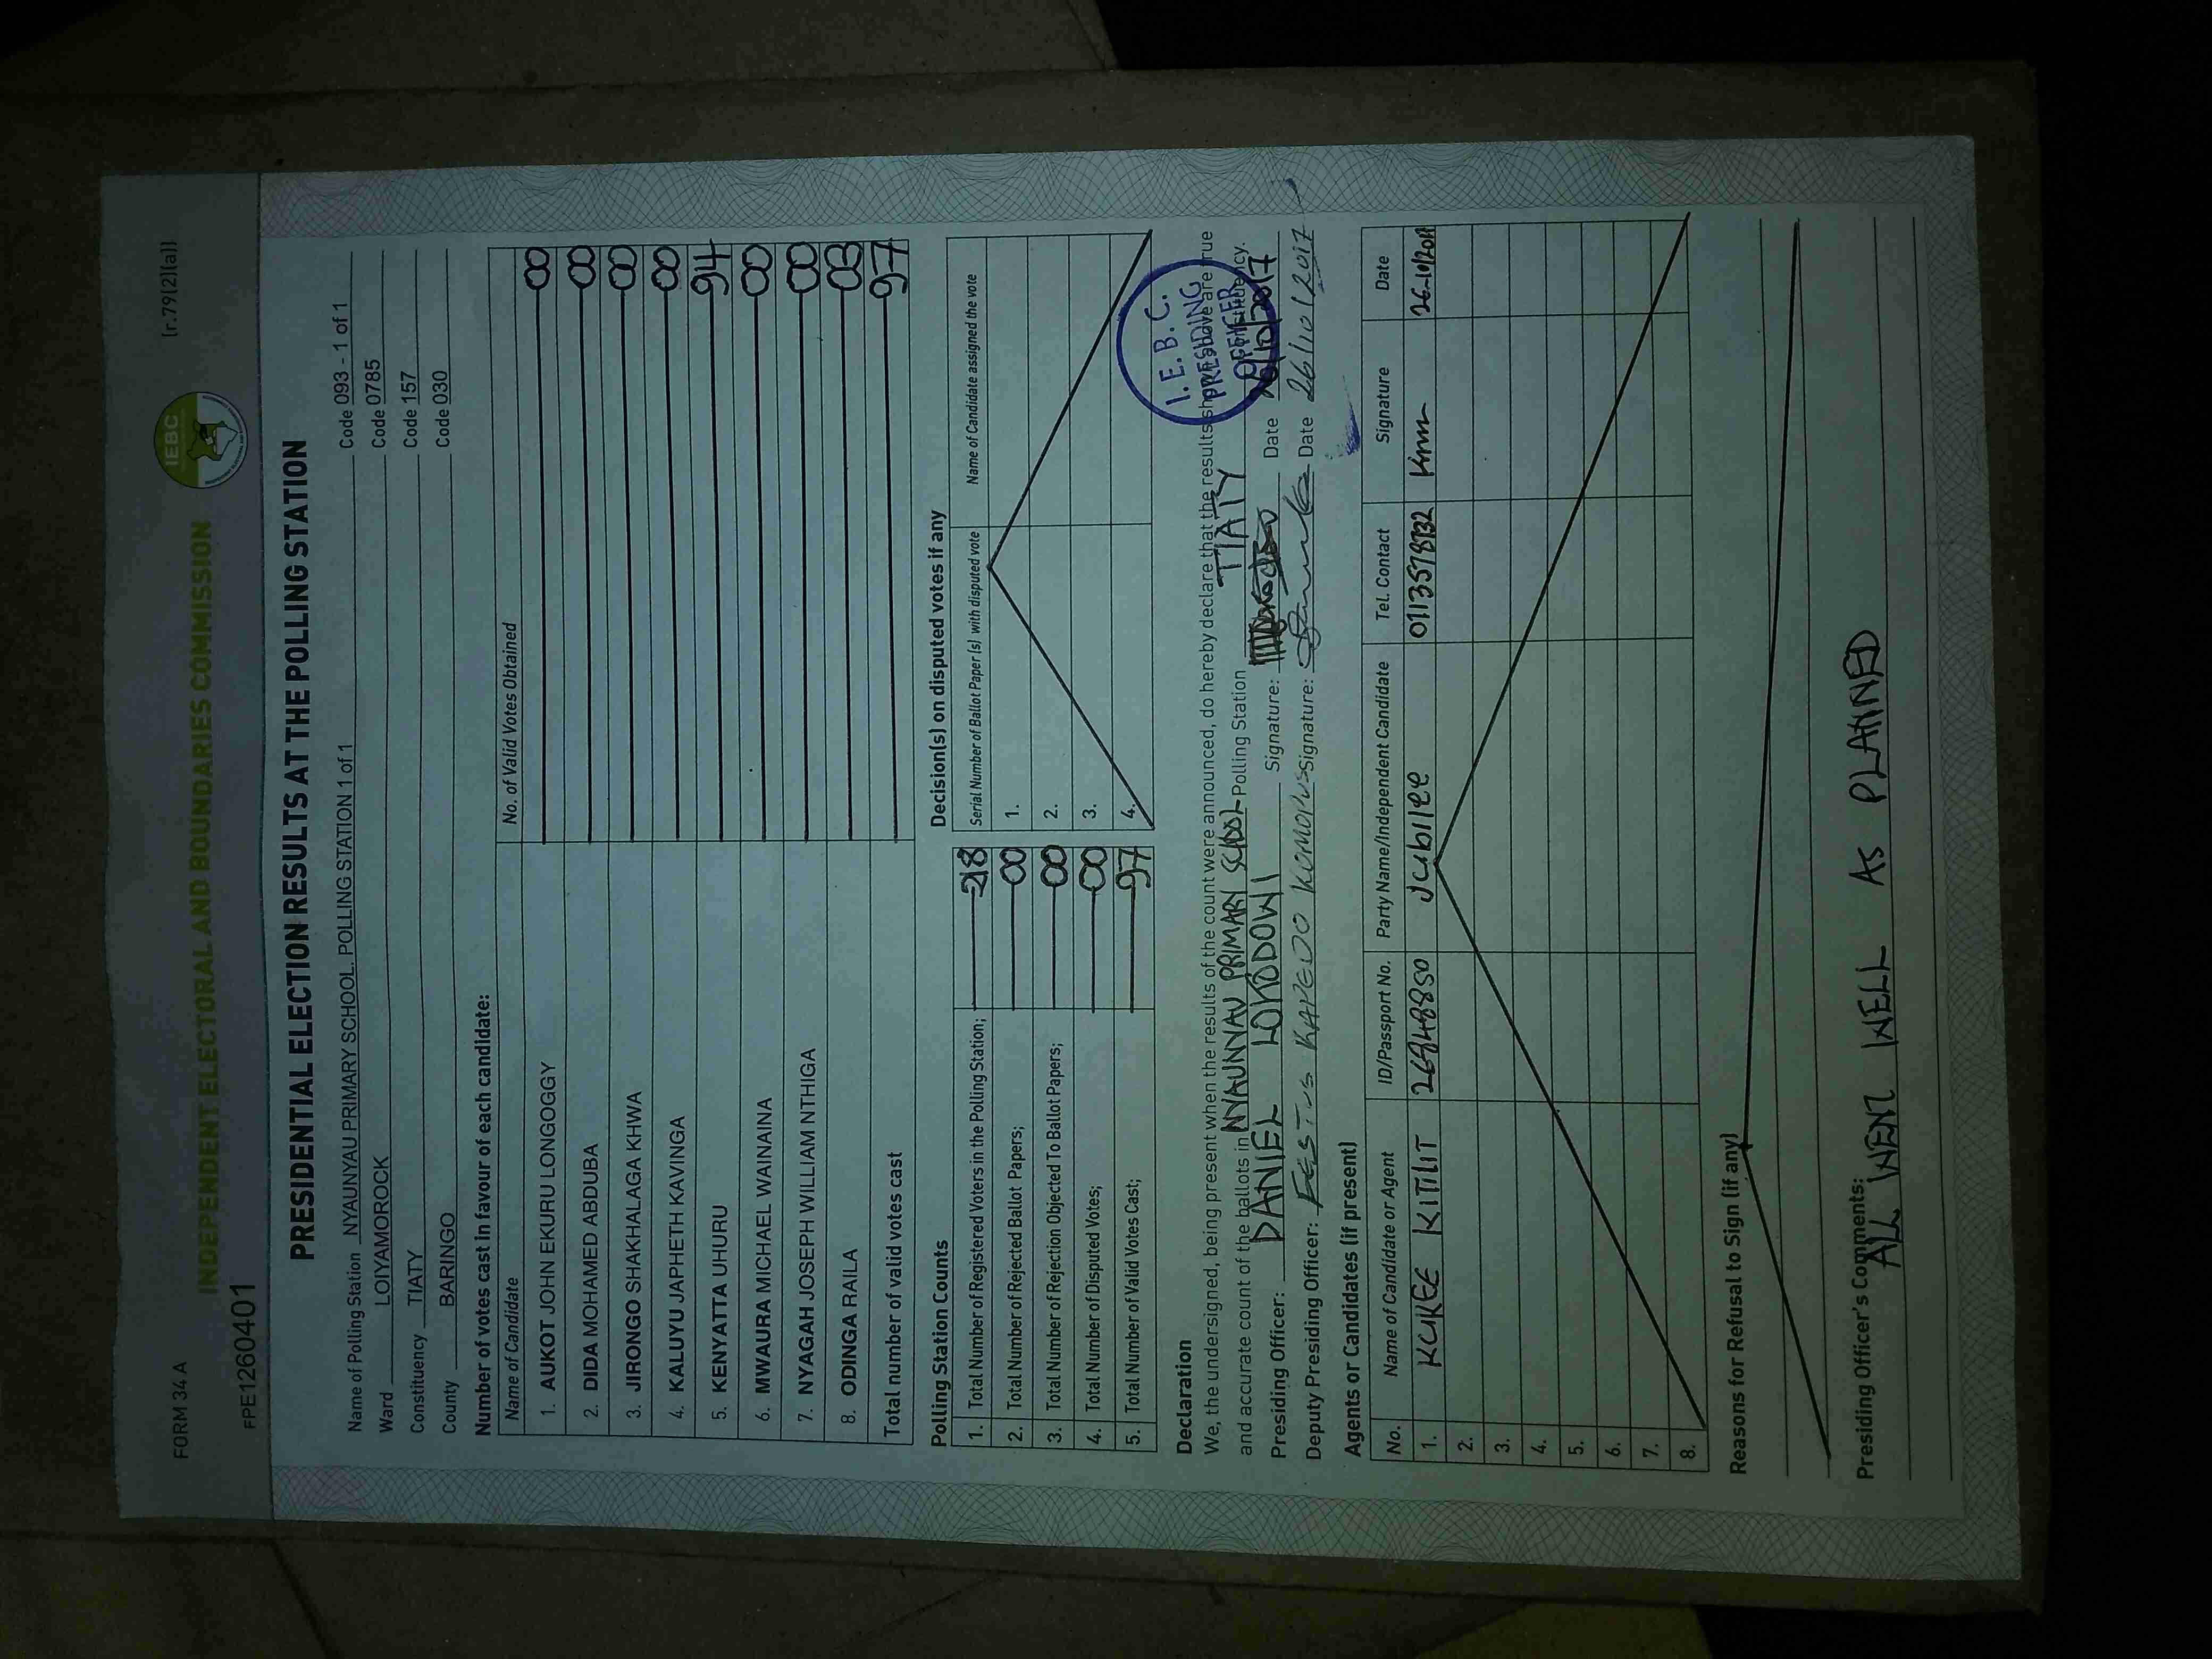 FORM 34 A
(r.79(2)(a))
IEBC
INDEPENDENT ELECTORAL AND BOUNDARIES COMMISSION
FPE1260401
PRESIDENTIAL ELECTION RESULTS AT THE POLLING STATION
Name of Polling Station NYAUNYAU PRIMARY SCHOOL. POLLING STATION 1 of 1 Code 093 - 1 of 1
Ward LOIYAMOROCK Code 0785
Constituency TIATY Code 157
County BARINGO Code 030
Number of votes cast in favour of each candidate:
Name of Candidate No. of Valid Votes Obtained
1. AUKOT JOHN EKURU LONGOGGY 00
2. DIDA MOHAMED ABDUBA 00
3. JIRONGO SHAKHALAGA KHWA 00
4. KALUYU JAPHETH KAVINGA 00
5. KENYATTA UHURU 94
6. MWAURA MICHAEL WAINAINA 00
7. NYAGAH JOSEPH WILLIAM NTHIGA 00
8. ODINGA RAILA 03
Total number of valid votes cast 97
Polling Station Counts
1. Total Number of Registered Voters in the Polling Station; 218
2. Total Number of Rejected Ballot Papers; 00
3. Total Number of Rejection Objected To Ballot Papers; 00
4. Total Number of Disputed Votes; 00
5. Total Number of Valid Votes Cast; 97
Decision(s) on disputed votes if any
Serial Number of Ballot Paper (s) with disputed vote Name of Candidate assigned the vote
1.
2.
3.
4.
Declaration
We, the undersigned, being present when the results of the count were announced, do hereby declare that the results shown above are true
and accurate count of the ballots in NYAUNYAU PRIMARY SCHOOL Polling Station TIATY Constituency.
Presiding Officer: DANIEL LOKODOWI Signature: Date 26/10/2017
Deputy Presiding Officer: FESTUS KAPEDO Signature: Date 26/10/2017
I.E.B.C.
PRESIDING
OFFICER
Agents or Candidates (if present)
No. Name of Candidate or Agent ID/Passport No. Party Name/Independent Candidate Tel. Contact Signature Date
1. KUKEE KITILIT Jubilee
2.
3.
4.
5.
6.
7.
8.
Reasons for Refusal to Sign (if any)
Presiding Officer's Comments:
ALL WENT WELL AS PLANNED